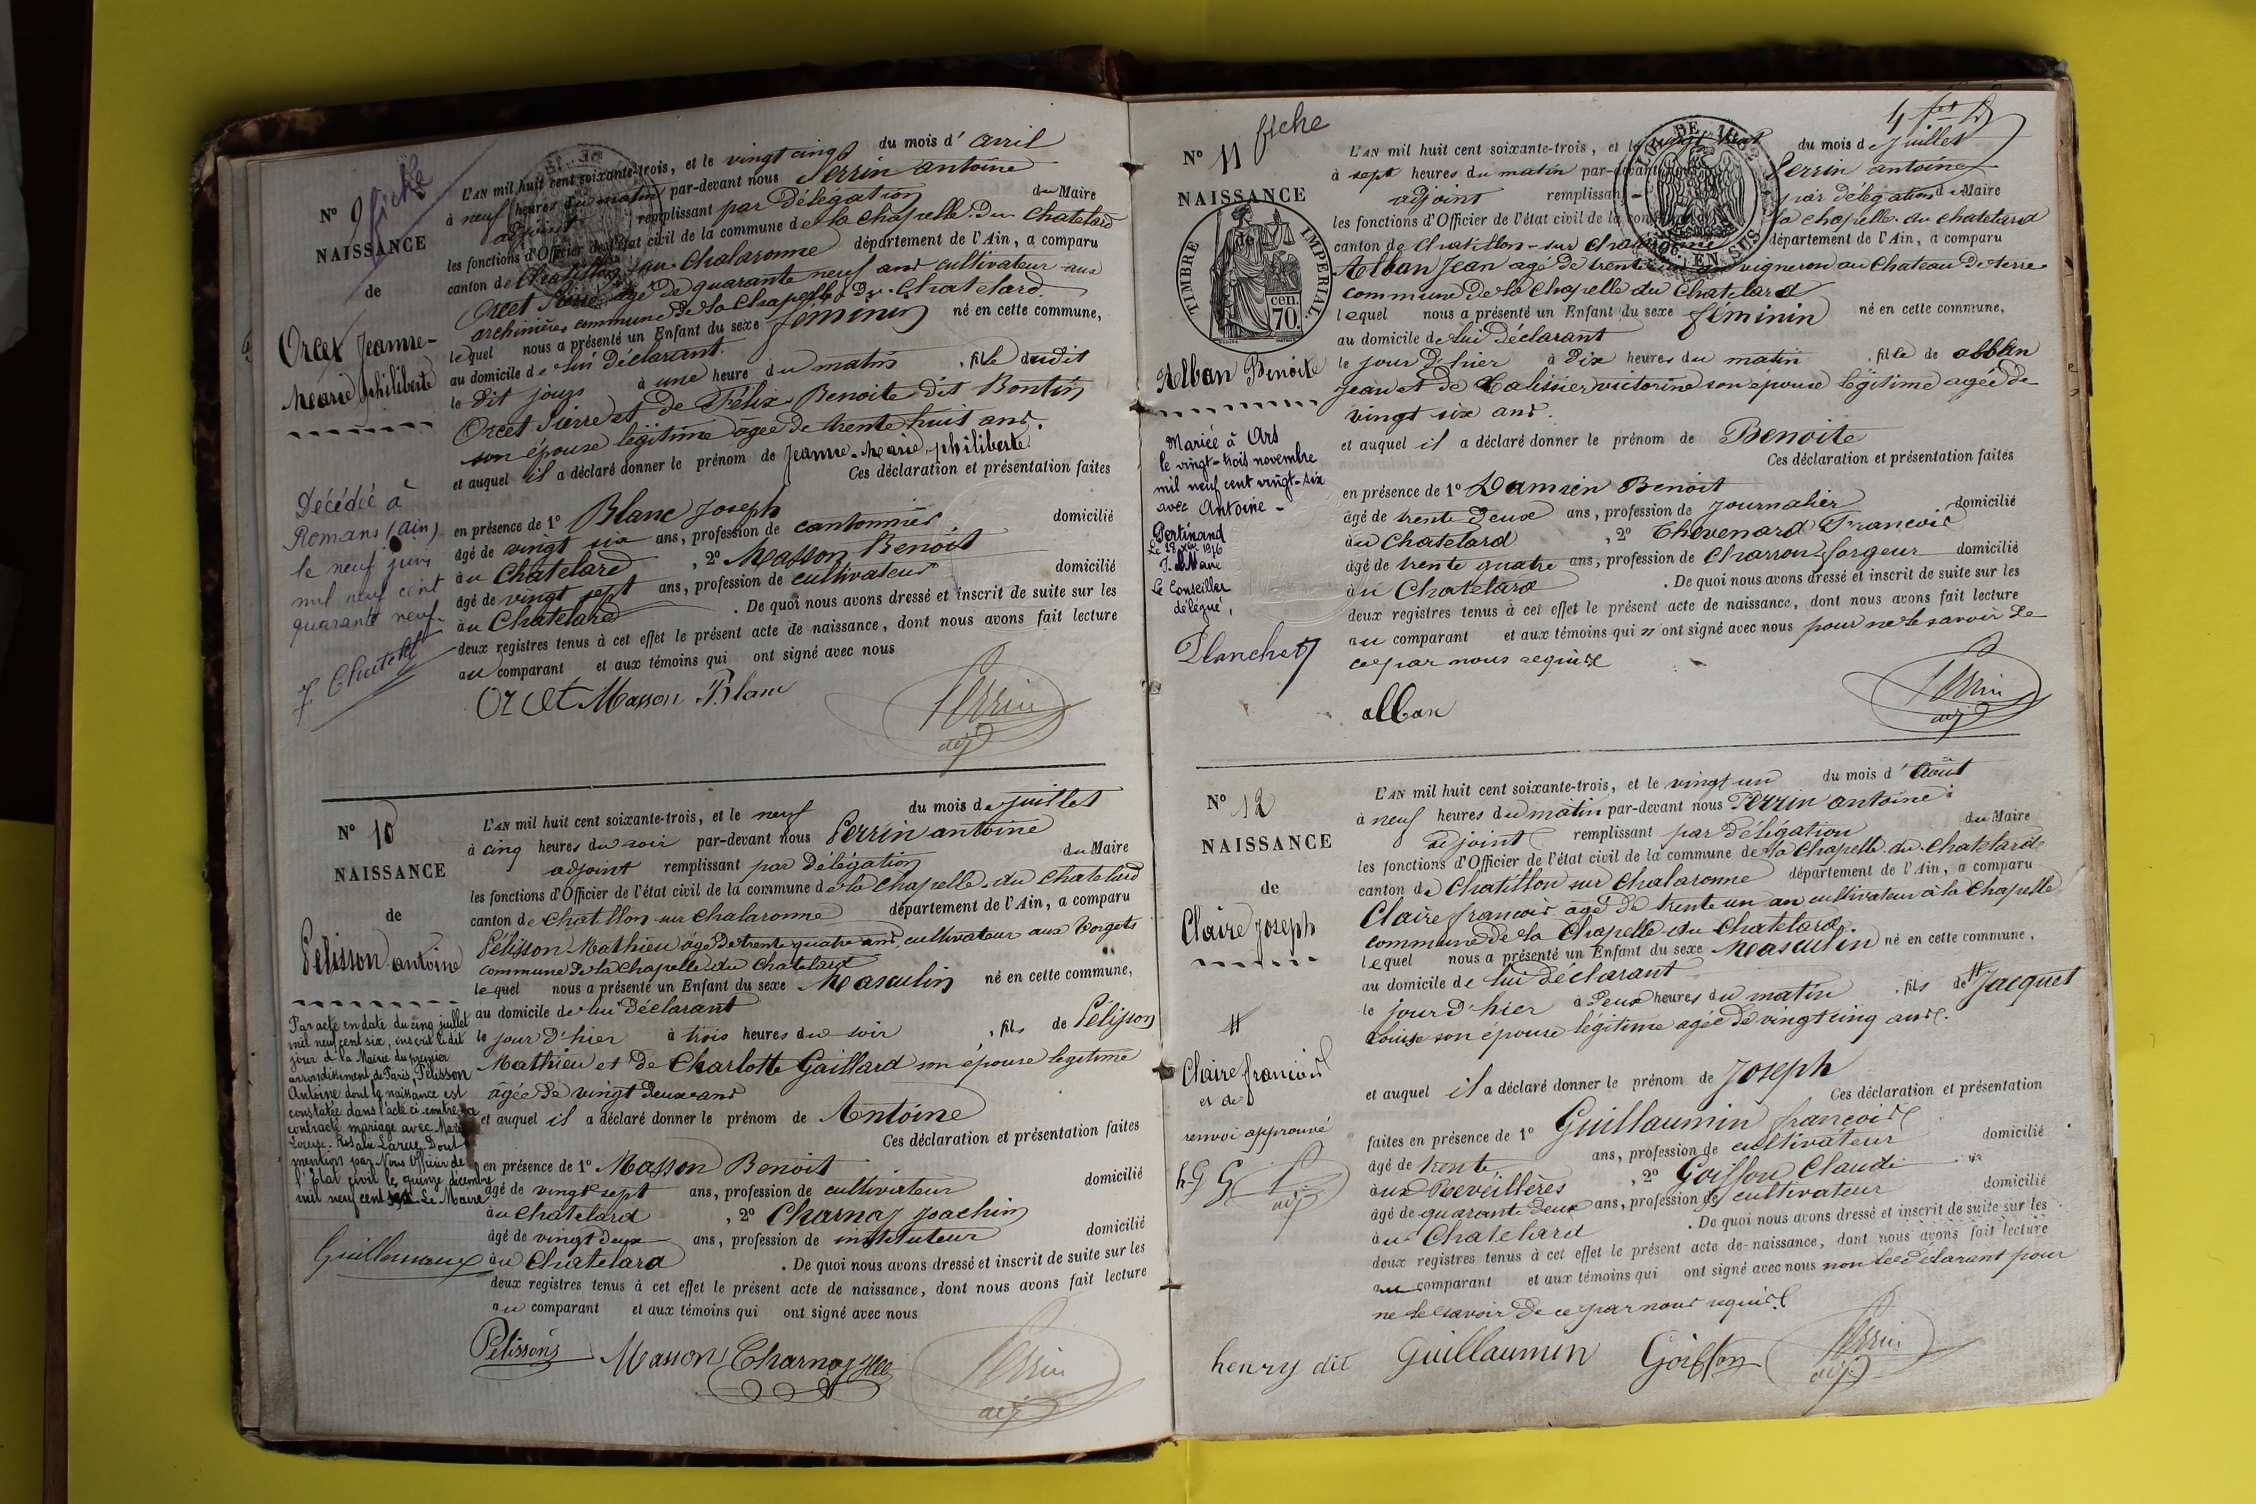 fiche
N° 9
NAISSANCE
de
Orcet Jeanne-
Marie philiberte
Décédée à
Romans (Ain)
le neuf juin
mil neuf cent
quarante neuf.
L'AN mil huit cent soixante-trois, et le vingt cinq du mois d' avril
à neuf heures du matin par-devant nous Perrin antoine
adjoint remplissant par délégation du Maire
les fonctions d'Officier de l'état civil de la commune de la Chapelle-du-Chatelard
canton de Chatillon sur-Chalaronne département de l'Ain, a comparu
Orcet Pierre agé de quarante neuf ans cultivateur aux
archinières commune de la Chapelle-du-Chatelard.
lequel nous a présenté un Enfant du sexe féminin né en cette commune,
au domicile de lui déclarant.
le dit jour à une heure du matin , fille dudit
Orcet Pierre et de Félix Benoite dit Bontin
son épouse légitime agée de trente huit ans.
et auquel il a déclaré donner le prénom de Jeanne-Marie-philiberte
Ces déclaration et présentation faites
en présence de 1° Blanc Joseph
âgé de vingt six ans, profession de cantonnier domicilié
à u Chatelard , 2° Masson Benoit
âgé de vingt sept ans, profession de cultivateur domicilié
à u Chatelard . De quoi nous avons dressé et inscrit de suite sur les
deux registres tenus à cet effet le présent acte de naissance, dont nous avons fait lecture
au comparant et aux témoins qui ont signé avec nous
Orcet Masson Blanc Perrin
adj
N° 10
NAISSANCE
de
Pélisson antoine
Par acte en date du cinq juillet
mil neuf cent six, inscrit le dit
jour à la Mairie du premier
arrondissement de Paris, Pélisson
Antoine dont la naissance est
constatée dans l'acte ci-contre a
contracté mariage avec Marie
Louise Rosalie Larue Dont
mention par Nous Officier de
l'Etat civil le quinze décembre
mil neuf cent six Le Maire
L'AN mil huit cent soixante-trois, et le neuf du mois de juillet
à cinq heures du soir par-devant nous Perrin antoine
adjoint remplissant par délégation du Maire
les fonctions d'Officier de l'état civil de la commune de la Chapelle-du Chatelard
canton de Chatillon sur Chalaronne département de l'Ain, a comparu
Pélisson Mathieu âgé de trente quatre ans cultivateur aux Vorgets
commune de la Chapelle du Chatelard
lequel nous a présenté un Enfant du sexe Masculin né en cette commune,
au domicile de lui déclarant
le jour d'hier à trois heures du soir , fils de Pélisson
Mathieu et de Charlotte Gaillard son épouse légitime
âgée de vingt deux ans
et auquel il a déclaré donner le prénom de Antoine
Ces déclaration et présentation faites
en présence de 1° Masson Benoit
âgé de vingt sept ans, profession de cultivateur domicilié
à u Chatelard , 2° Charnay Joachin
âgé de vingt deux ans, profession de instituteur domicilié
à u Chatelard . De quoi nous avons dressé et inscrit de suite sur les
deux registres tenus à cet effet le présent acte de naissance, dont nous avons fait lecture
au comparant et aux témoins qui ont signé avec nous
Pélisson Masson Charnay Perrin
adj
fiche
N° 11
NAISSANCE
de
TIMBRE IMPERIAL
cen.
70.
Alban Benoite
Mariée à Ars
le vingt-trois novembre
mil neuf cent vingt-six
avec Antoine -
Pertinand
Le Conseiller
délégué,
Planchet
L'AN mil huit cent soixante-trois, et le vingt du mois de juillet
à sept heures du matin par-devant nous Perrin antoine
adjoint remplissant par délégation du Maire
les fonctions d'Officier de l'état civil de la commune de la chapelle-du chatelard
canton de Chatillon-sur Chalaronne département de l'Ain, a comparu
EN SUS
Alban Jean agé de trente ans vigneron au Chateau de terre
commune de la Chapelle du Chatelard
lequel nous a présenté un Enfant du sexe féminin né en cette commune,
au domicile de lui déclarant
le jour d'hier à dix heures du matin , fille de alban
Jean et de victorine son épouse légitime agée de
vingt six ans.
et auquel il a déclaré donner le prénom de Benoite
Ces déclaration et présentation faites
en présence de 1° Damien Benoit
âgé de trente deux ans, profession de journalier domicilié
à u Chatelard , 2° Thevenard Francois
âgé de trente quatre ans, profession de Charron forgeur domicilié
à u Chatelard . De quoi nous avons dressé et inscrit de suite sur les
deux registres tenus à cet effet le présent acte de naissance, dont nous avons fait lecture
au comparant et aux témoins qui n'ont signé avec nous pour ne le savoir de
ce par nous requis
alban Perrin
adj
N° 12
NAISSANCE
de
Claire Joseph
#
Claire francois
et de
renvoi approuvé
h G G P
adj
L'AN mil huit cent soixante-trois, et le vingt un du mois d' Août
à neuf heures du matin par-devant nous Perrin antoine
adjoint remplissant par délégation du Maire
les fonctions d'Officier de l'état civil de la commune de la Chapelle-du-Chatelard
canton de Chatillon sur Chalaronne département de l'Ain, a comparu
Claire francois agé de trente un an cultivateur à la Chapelle
commune de la Chapelle du Chatelard.
lequel nous a présenté un Enfant du sexe Masculin né en cette commune,
au domicile de lui déclarant
le jour d'hier à deux heures du matin , fils de # Jacquet
Louise son épouse légitime agée de vingt cinq ans.
et auquel il a déclaré donner le prénom de Joseph
Ces déclaration et présentation
faites en présence de 1° Guillaumin francois
âgé de trente ans, profession de cultivateur domicilié
à ux Reveillères , 2° Goiffon Claude
âgé de quarante deux ans, profession de cultivateur domicilié
à u Chatelard . De quoi nous avons dressé et inscrit de suite sur les
deux registres tenus à cet effet le présent acte de naissance, dont nous avons fait lecture
au comparant et aux témoins qui ont signé avec nous non le déclarant pour
ne le savoir de ce par nous requis.
henry dit Guillaumin Goiffon Perrin
adj.